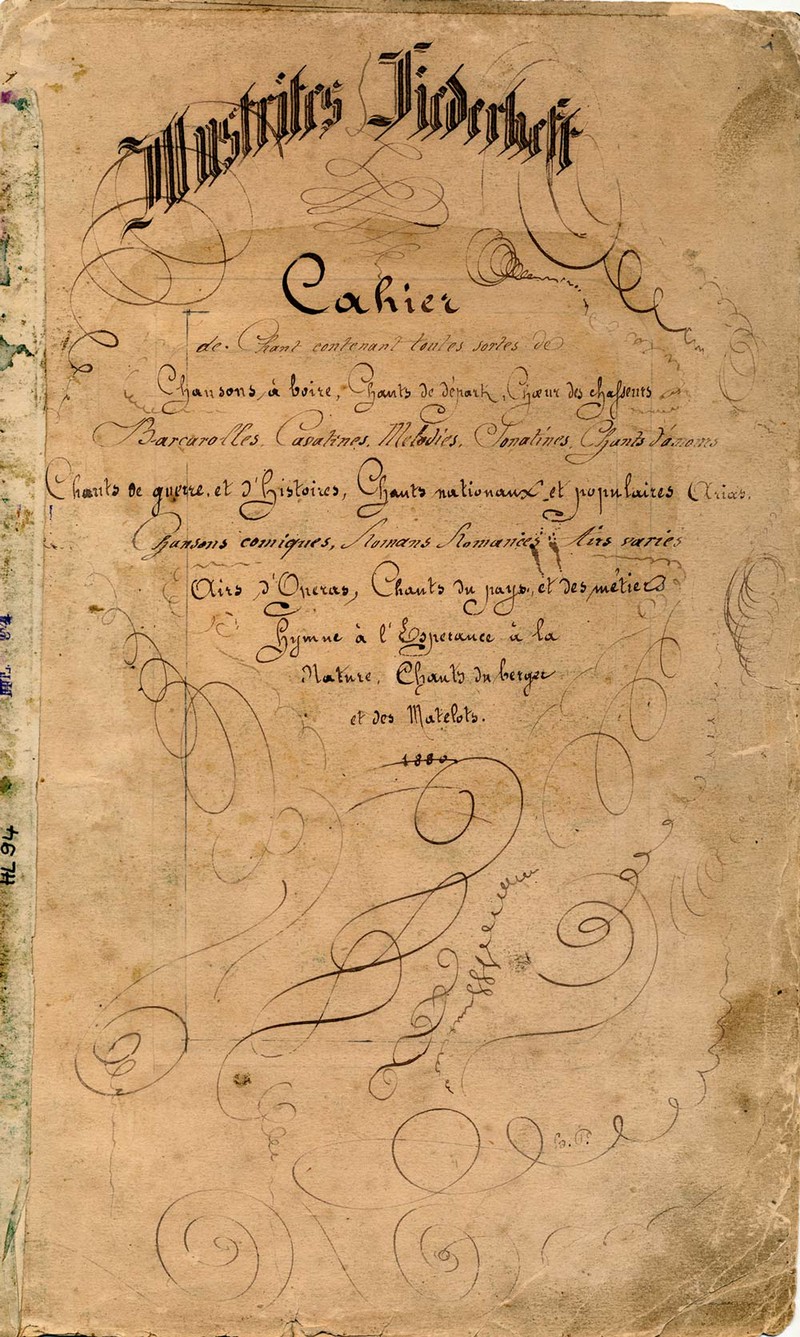 Illustrites Liederheft
Cahier
de Chant contenant toutes sortes de
Chansons à boire, Chants de départ, Chœur des chasseurs
Barcarolles, Cavatines, Mélodies, Sonatines, Chants d'amour
Chants de guerre, et d'Histoires, Chants nationaux et populaires Arias,
Chansons comiques, Romans Romances Airs variés
Airs d'Operas, Chants du pays, et des métiers
Hymne à l'Esperance à la
Nature, Chants du berger
et des Matelots.
1880
HL 94